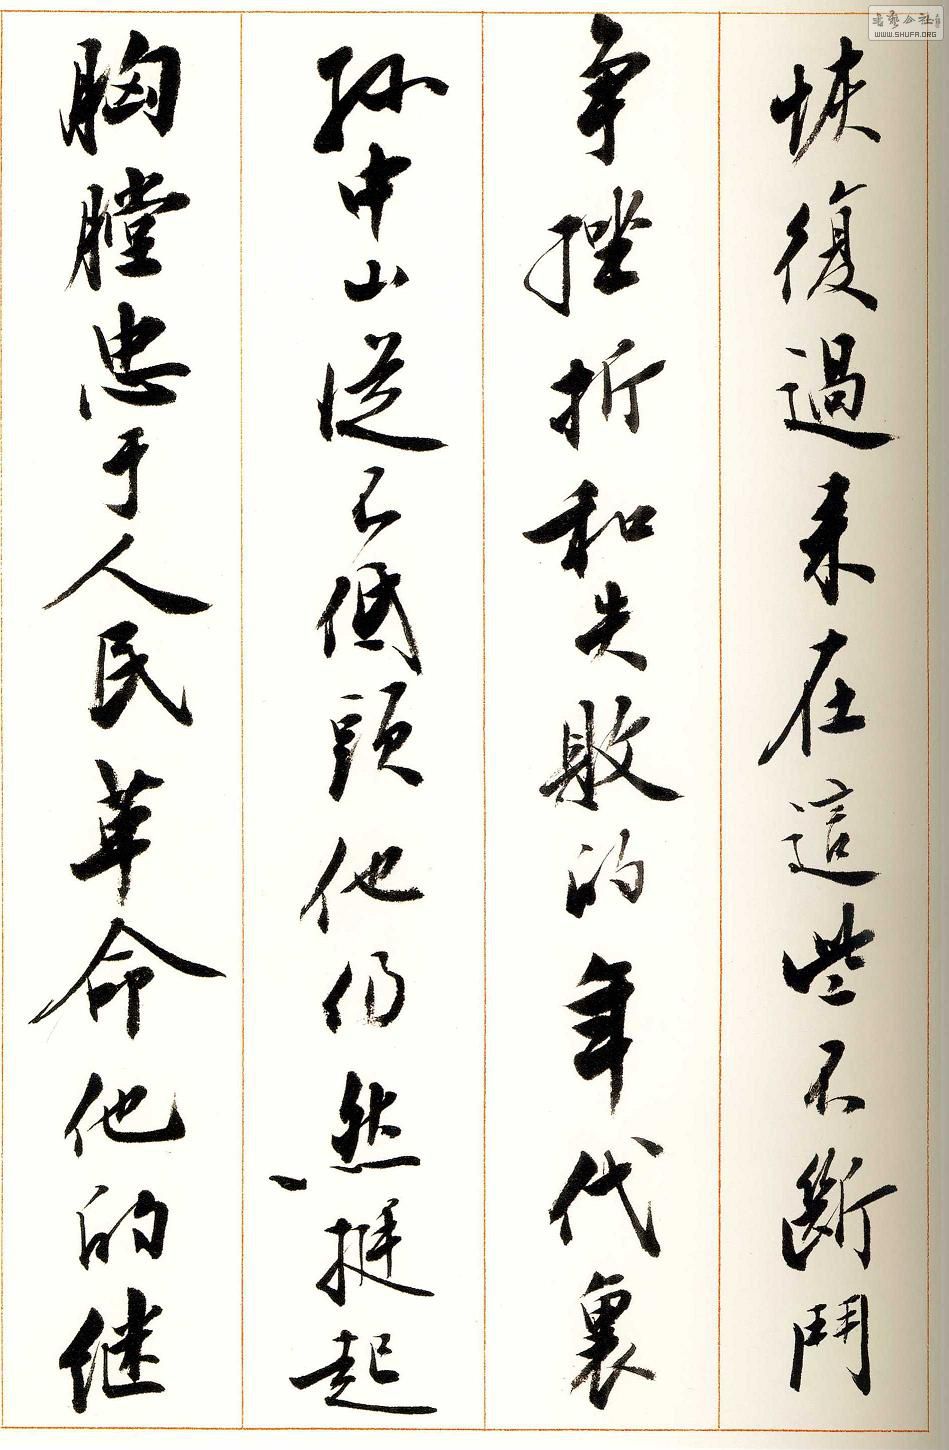 恢復過来在這些不断鬥
争挫折和失敗的年代裏
孫中山從不低頭他仍然挺起
胸膛忠于人民革命他的继
WWW.SHUFA.ORG